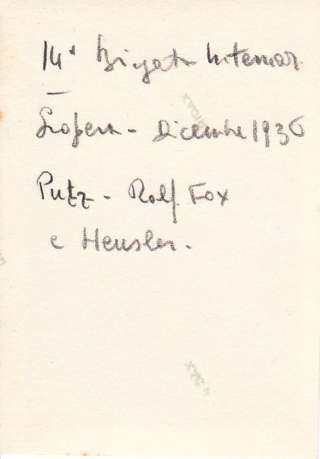 14ª Brigata Internaz.
Lopera - Dicembre 1936
Putz - Ralf Fox
e Heusler.